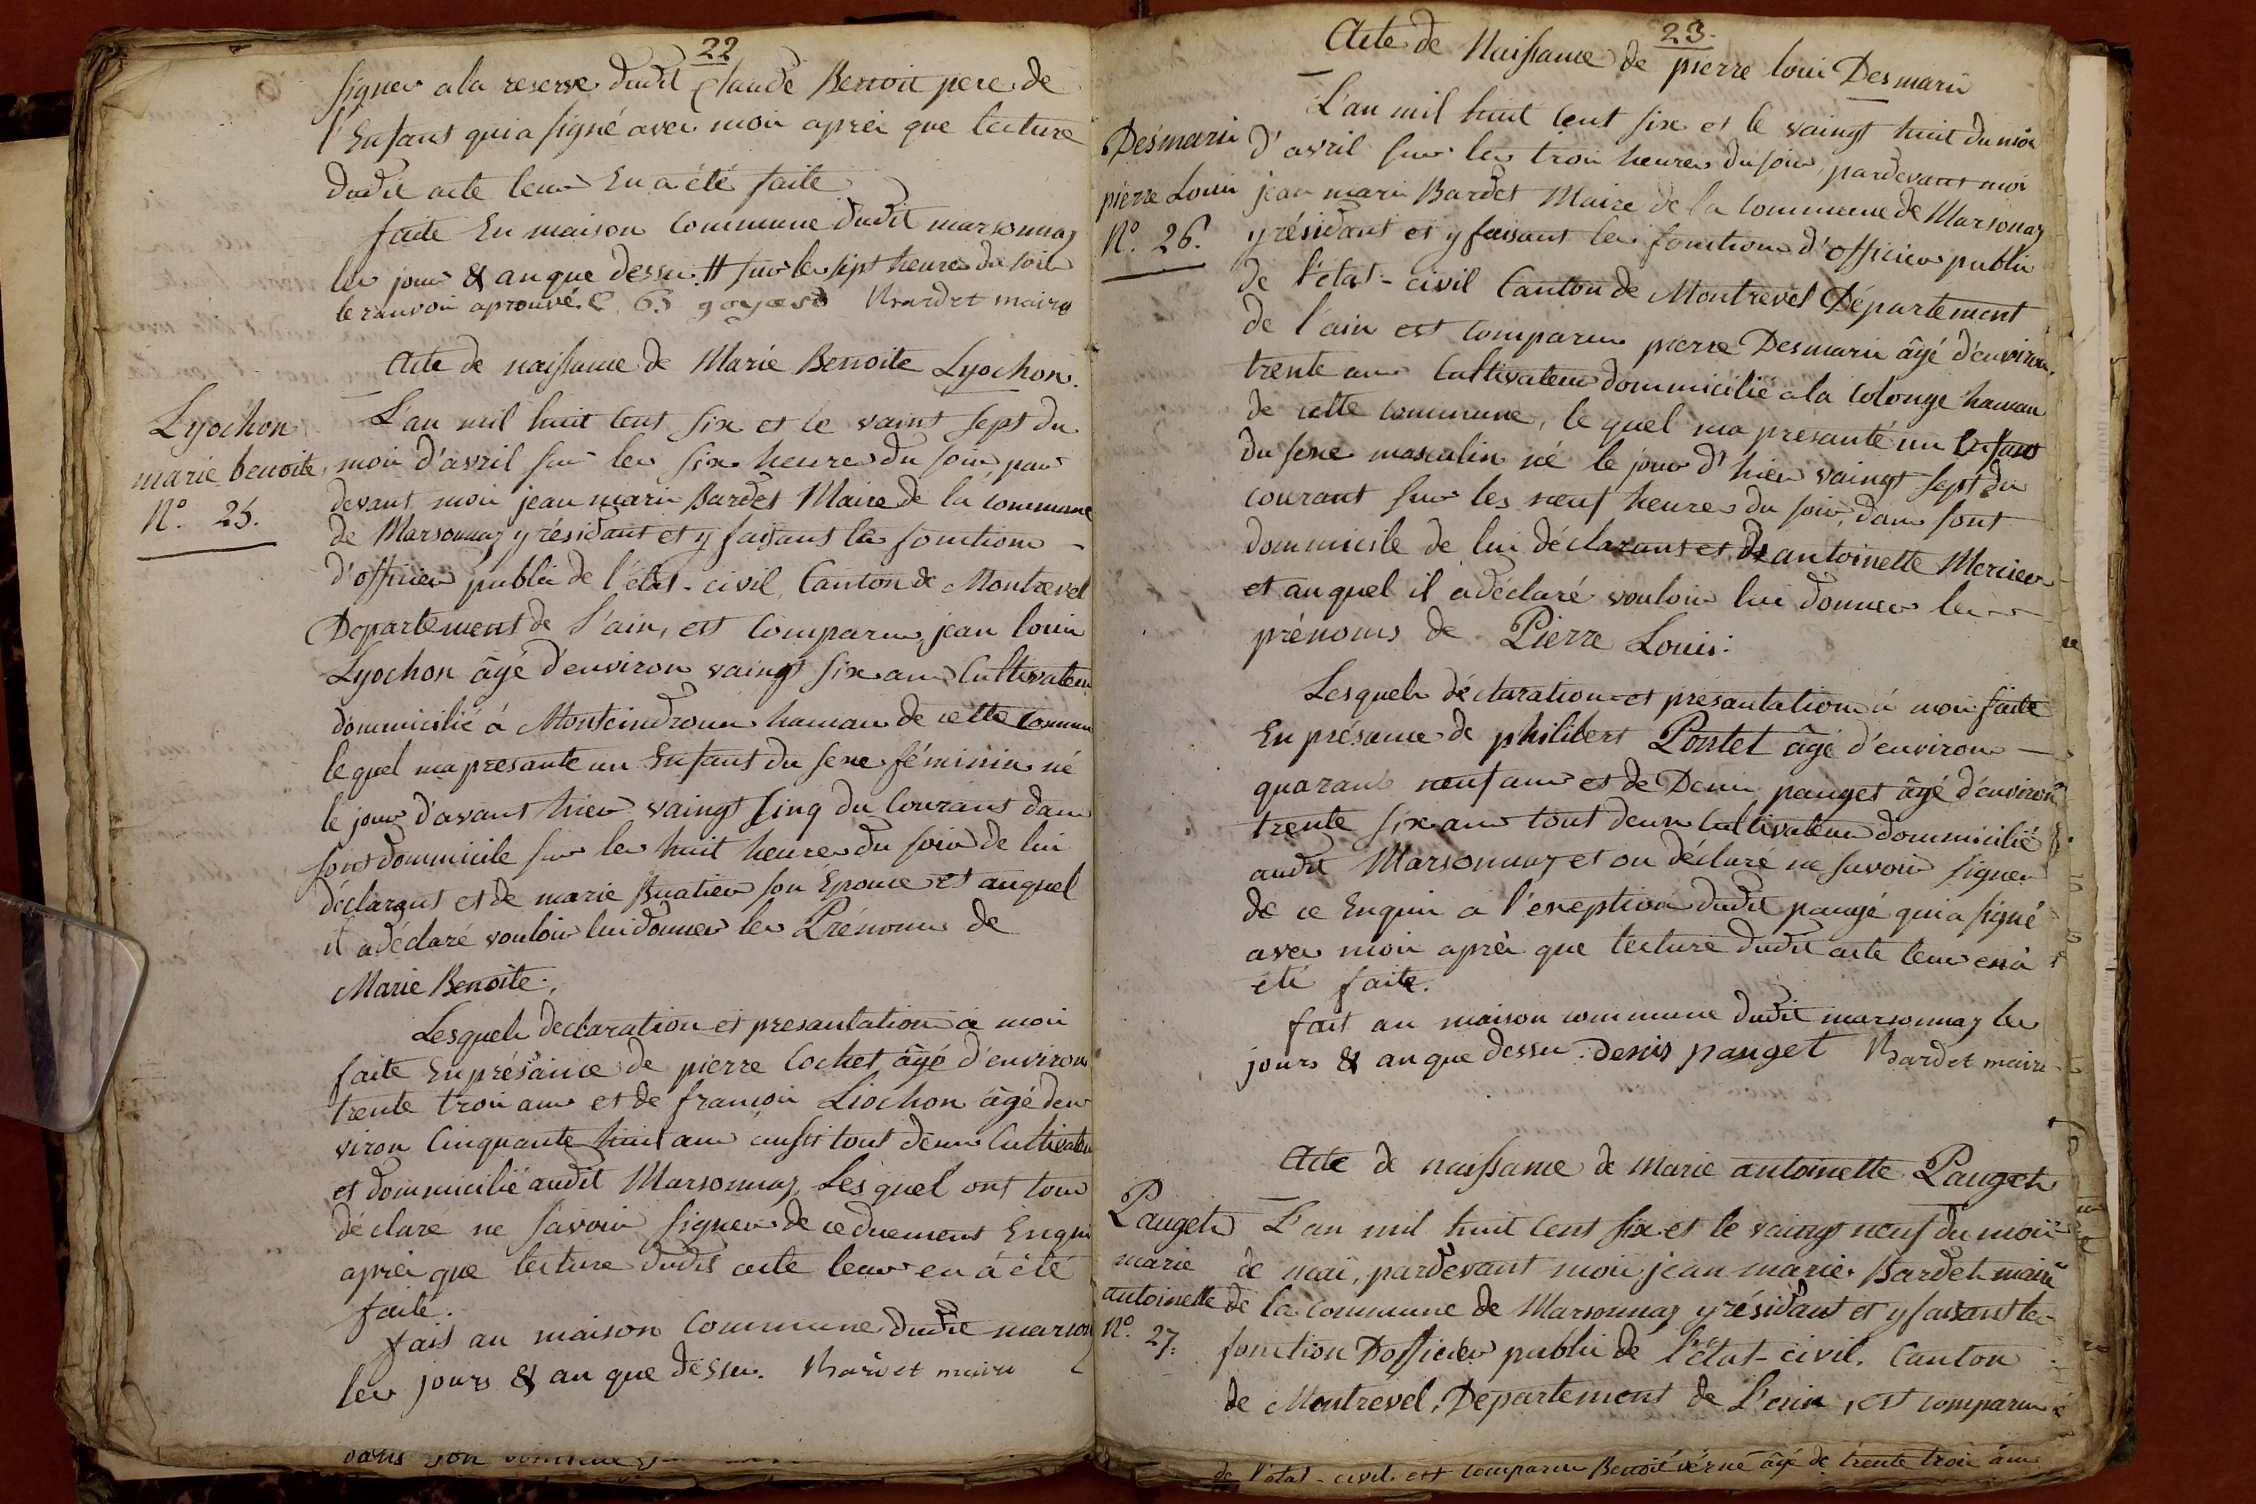 22
signer a la reserve dudit Claude Benoit pere de
l'Enfant qui a signé avec moi après que lecture
dudit acte leur En a été faite
faite En maison Commune dudit marsonnaz
les jour & an que dessu # sur les sept heures du soir
le ranvoi aprouvé Bardet maire
Acte de naissance de Marie Benoite Lyochon.
Lyochon
marie benoite
N° 25.
L'an mil huit cent six et le vaint sept du
moi d'avril sur les six heures du soir par
devant moi jean marie Bardet Maire de la commune
de Marsonnaz y résidant et y faisant les fonctions
d'officier public de l'état-civil, Canton de Montrevel
Departement de l'ain, est Comparu jean louis
Lyochon âgé d'environ vaingt six ans Cultivateur
dommicilié à Monteindroux hamau de cette Commun
le quel ma presante un Enfant du sexe féminin né
le jour d'avant hier vaingt sinq du Courant dans
sont dommicile sur les huit heures du soir de lui
déclarant et de marie Buatier son Epouse et auquel
il a déclaré vouloir lui donner les Prénoms de
Marie Benoite.
Lesquels declaration et presantation a moi
faite En présance de pierre Cochet âgé d'environ
trente troi ans et de francoi Liochon âgé den
viron Cinquante huit ans aussi tout deux Cultivateu
et dommicilié audit Marsonnaz, Lesquel ont tous
déclaré ne savoir signer de ce duement Enqui
après que lecture dudis acte leur en a été
faite.
fait au maison Commune dudit marson
les jours & an que dessu. Bardet maire
dans son
23.
Acte de Naissance de pierre loui Desmaris
Desmaris
pierre Louis
N° 26.
L'an mil huit cent six et le vaingt huit du moi
d'avril sur les troi heures du soir, pardevant moi
jean marie Bardet Maire de la Commune de Marsonaz
y résidant et y faisant les fonctions d'officier public
de l'état-civil Canton de Montrevel Département
de l'ain est comparu pierre Desmaris âgé d'environ
trente ans Cultivateur dommicilié a la Colonge hamau
de cette commune, le quel ma presanté un Enfant
du sexe masculin né le jour d'hier vaingt sept du
courant sur les neuf heures du soir, dans sont
dommicile de lui déclarant et de antoinette Mercier
et auquel il a déclaré vouloir lui donner les
prénoms de Pierre Louis.
Lesquels déclaration et présantation à moi faite
En présance de philibert Pontet âgé d'environ
quarant neuf ans et de Denis pauget âgé d'environ
trente six ans tout deux Cultivateur dommicilié
audit Marsonnaz et on déclaré ne savoir signer
de ce Enquis a l'exeption dudit paugé qui a signé
avec moi après que lecture dudit acte leur en a
été faite.
fait au maison commune dudit marsonnaz les
jours & an que dessu. Denis pauget Bardet maire
Acte de naissance de Marie antoinette Pauget
Pauget
marie
antoinette
N° 27.
L'an mil huit cent six et le vaingt neuf du moi
de mai, pardevant moi jean marie Bardet maire
de la commune de Marsonnaz y résidant et y faisant les
fonction D'officier public de l'état-civil. Canton
de Montrevel, Departement de l'ain, est comparu
de l'état-civil est comparu Benoit véрné âgé de trente troi ans